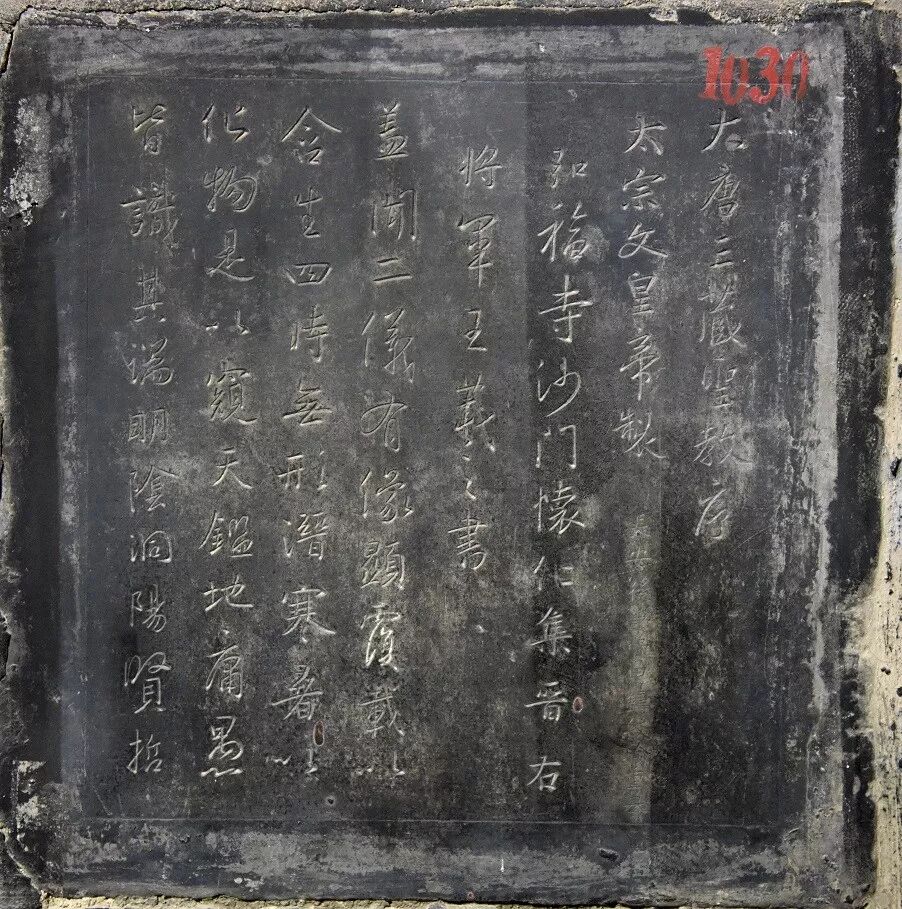 1030
大唐三藏聖教序
太宗文皇帝製
弘福寺沙门懷仁集晋右
將軍王羲之書
盖聞二儀有像顯覆載以
含生四時無形潛寒暑以
化物是以窺天鑑地庸愚
皆識其端明陰洞陽賢哲